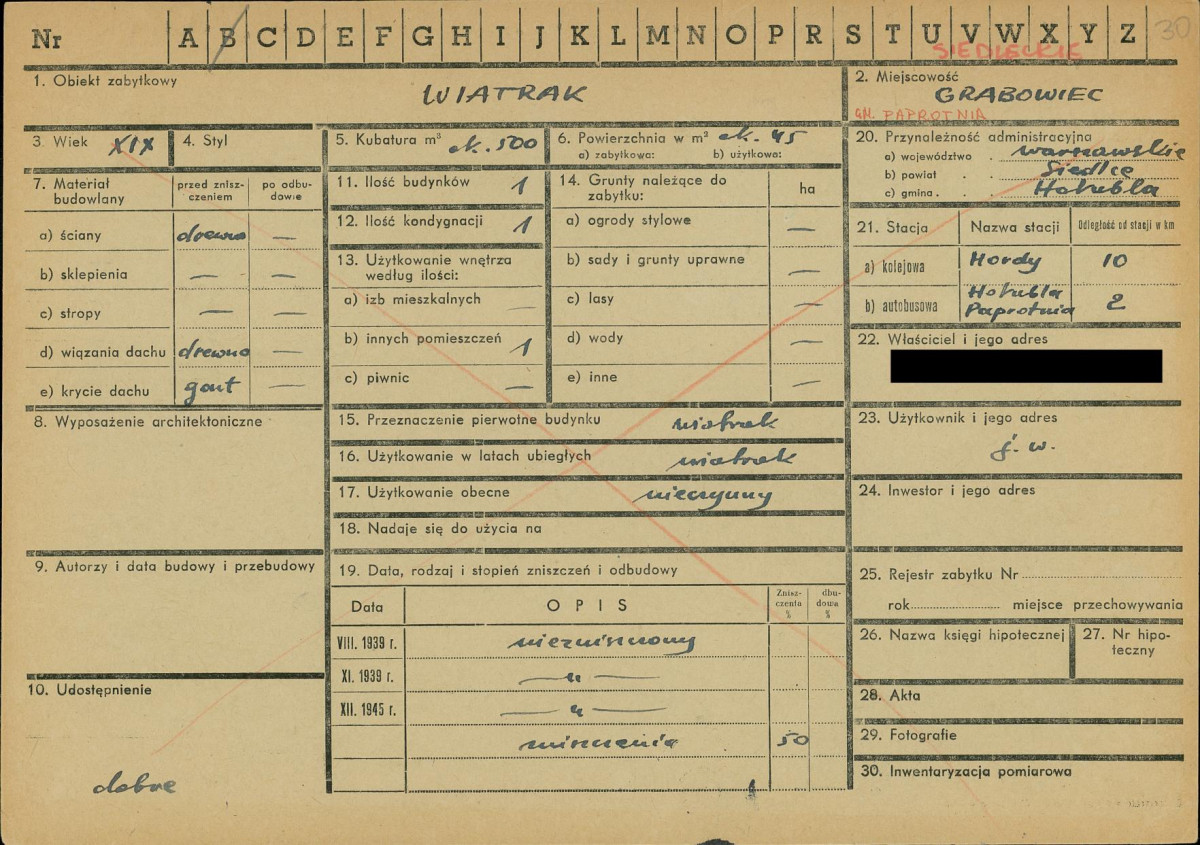 Nr A B C D E F G H I J K L M N O P R S T U V W X Y Z 30
SIEDLECKIE
1. Obiekt zabytkowy
WIATRAK
2. Miejscowość
GRABOWIEC
GM. PAPROTNIA
3. Wiek XIX
4. Styl
5. Kubatura m³ ok. 500
6. Powierzchnia w m² ok. 45
a) zabytkowa: b) użytkowa:
7. Materiał budowlany
przed zniszczeniem
po odbudowie
a) ściany drewno —
b) sklepienia — —
c) stropy — —
d) wiązania dachu drewno —
e) krycie dachu gont —
8. Wyposażenie architektoniczne
9. Autorzy i data budowy i przebudowy
10. Udostępnienie
dobre
11. Ilość budynków 1
12. Ilość kondygnacji 1
13. Użytkowanie wnętrza
według ilości:
a) izb mieszkalnych —
b) innych pomieszczeń 1
c) piwnic —
14. Grunty należące do
zabytku:
ha
a) ogrody stylowe —
b) sady i grunty uprawne —
c) lasy —
d) wody —
e) inne —
15. Przeznaczenie pierwotne budynku wiatrak
16. Użytkowanie w latach ubiegłych wiatrak
17. Użytkowanie obecne nieczynny
18. Nadaje się do użycia na
19. Data, rodzaj i stopień zniszczeń i odbudowy
Data OPIS
Zniszczenia %
dbudowa %
VIII. 1939 r. niezniszczony
XI. 1939 r. — „ —
XII. 1945 r. — „ —
zniszczenia 50
20. Przynależność administracyjna
a) województwo . warszawskie
b) powiat . . Siedlce
c) gmina . . Hołubla
21. Stacja Nazwa stacji Odległość od stacji w km
a) kolejowa Mordy 10
b) autobusowa Hołubla
Paprotnia 2
22. Właściciel i jego adres
23. Użytkownik i jego adres
j. w.
24. Inwestor i jego adres
25. Rejestr zabytku Nr
rok miejsce przechowywania
26. Nazwa księgi hipotecznej
27. Nr hipoteczny
28. Akta
29. Fotografie
30. Inwentaryzacja pomiarowa